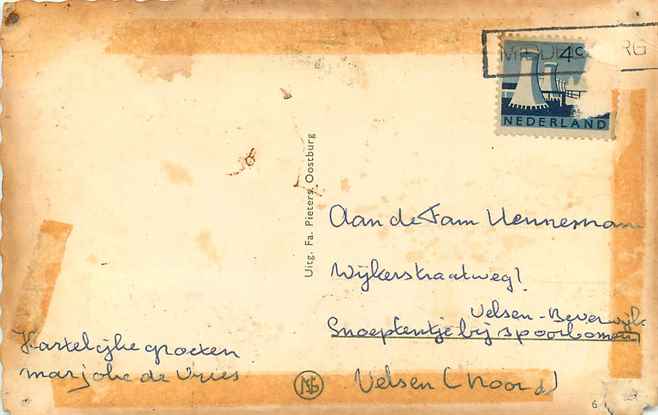 4c
NEDERLAND
Uitg. Fa. Pieters, Oostburg
Aan de Fam Henneman
Wijkerstraatweg 1
Velsen-Beverwijk
Snoeptentje bij spoorbomen
Velsen (Noord)
Hartelijke groeten
marjoke de Vries
6